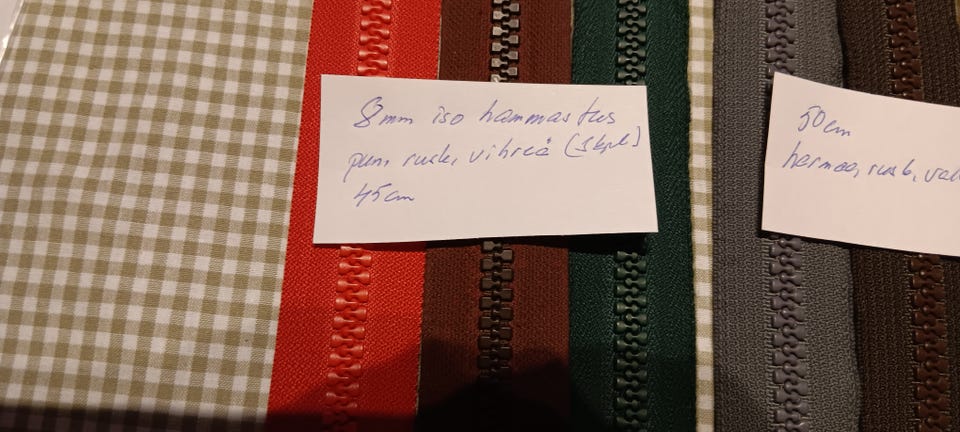 8mm iso hammastus
pun, rusk, vihreä (1kpl)
45cm
50cm
harmaa, rusk, val